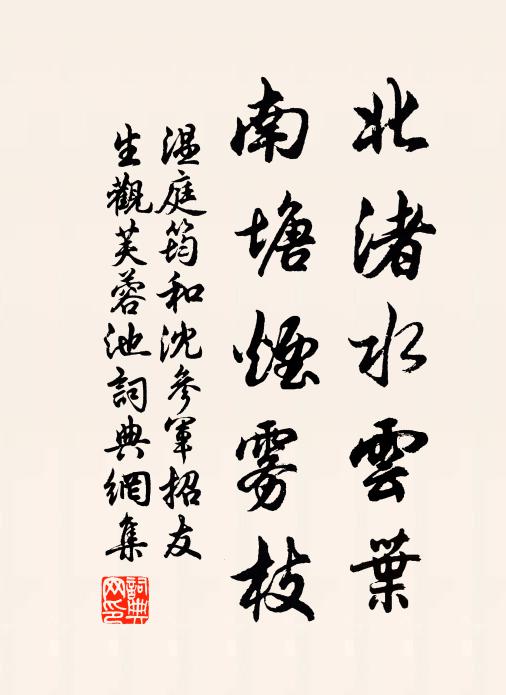 北渚水雲葉
南塘煙雾枝
温庭筠和沈參軍招友
生觀芙蓉池詞典網集
詞典網印